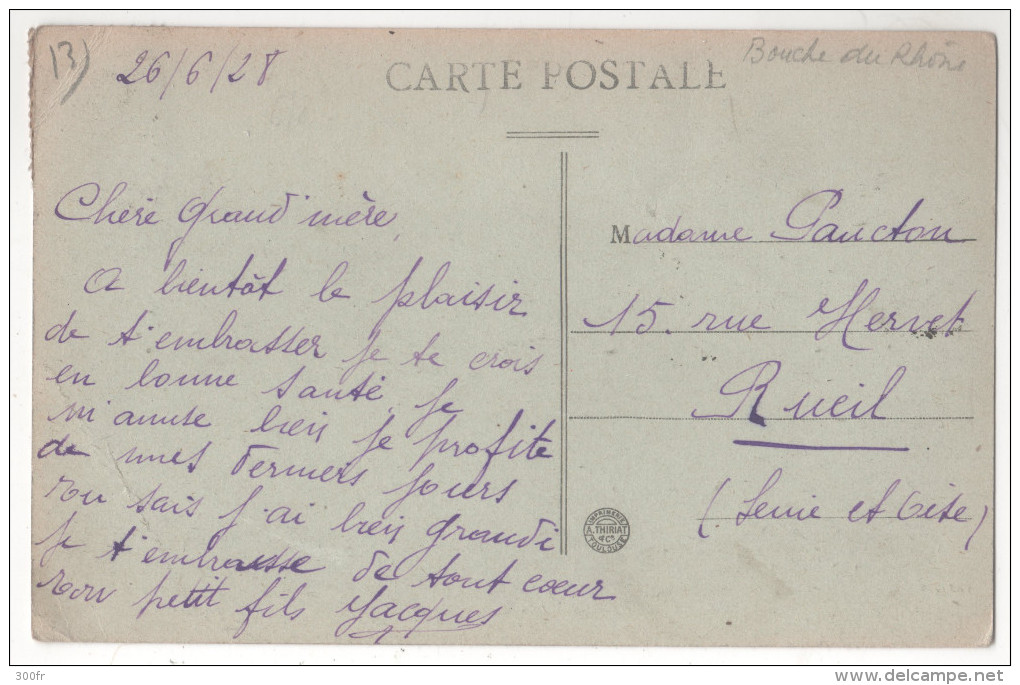 13)
26/6/28
CARTE POSTALE
Bouche du Rhône
Chère Grand'mère,
A bientôt le plaisir
de t'embrasser je te crois
en bonne santé, je
m'amuse bien je profite
de mes derniers jours
tu sais j'ai bien grandi
je t'embrasse de tout coeur
ton petit fils Jacques
Madame Paucton
15. rue Hervet
Rueil
(Seine et Oise)
IMPRIMERIE
A. THIRIAT
& Cie
TOULOUSE
300fr
www.delcampe.net